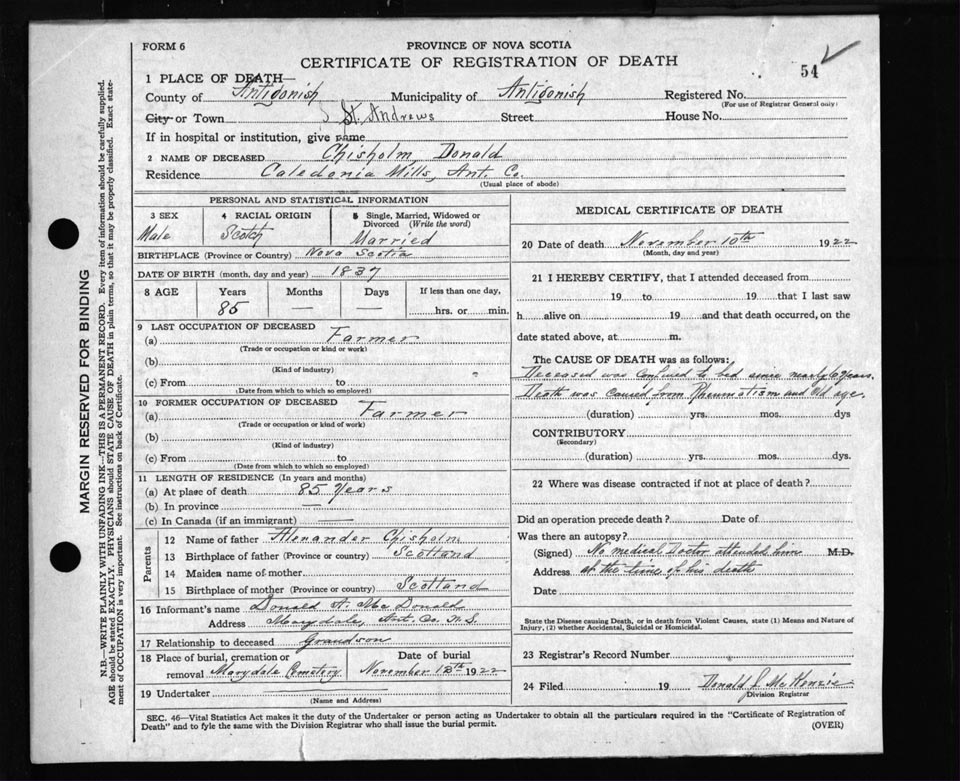 FORM 6
PROVINCE OF NOVA SCOTIA
CERTIFICATE OF REGISTRATION OF DEATH
54
1 PLACE OF DEATH—
County of Antigonish Municipality of Antigonish Registered No.
(For use of Registrar General only)
City or Town St. Andrews Street House No.
If in hospital or institution, give name
2 NAME OF DECEASED Chisholm, Donald
Residence Caledonia Mills, Ant. Co.
(Usual place of abode)
PERSONAL AND STATISTICAL INFORMATION
3 SEX 4 RACIAL ORIGIN 5 Single, Married, Widowed or Divorced (Write the word)
Male Scotch Married
BIRTHPLACE (Province or Country) Nova Scotia
DATE OF BIRTH (month, day and year) 1837
8 AGE Years Months Days If less than one day,
85 — — hrs. or min.
9 LAST OCCUPATION OF DECEASED
(a) Farmer
(Trade or occupation or kind or work)
(b)
(Kind of industry)
(c) From to
(Date from which to which so employed)
10 FORMER OCCUPATION OF DECEASED
(a) Farmer
(Trade or occupation or kind of work)
(b)
(Kind of industry)
(c) From to
(Date from which to which so employed)
11 LENGTH OF RESIDENCE (In years and months)
(a) At place of death 85 Years
(b) In province —
(c) In Canada (if an immigrant) —
Parents
12 Name of father Alexander Chisholm
13 Birthplace of father (Province or country) Scotland
14 Maiden name of mother
15 Birthplace of mother (Province or country) Scotland
16 Informant's name Donald A. McDonald
Address Marydale, Ant. Co. N.S.
17 Relationship to deceased Grandson
18 Place of burial, cremation or removal Marydale Cemetery Date of burial November 12th 1922
19 Undertaker
(Name and Address)
MEDICAL CERTIFICATE OF DEATH
20 Date of death November 10th 1922
(Month, day and year)
21 I HEREBY CERTIFY, that I attended deceased from
19 to 19 that I last saw
h alive on 19 and that death occurred, on the
date stated above, at m.
The CAUSE OF DEATH was as follows:
Deceased was confined to bed since nearly 6 years.
Death was caused from Rheumatism and Old age.
(duration) yrs. mos. dys
CONTRIBUTORY
(Secondary)
(duration) yrs. mos. dys.
22 Where was disease contracted if not at place of death?
Did an operation precede death? Date of
Was there an autopsy?
(Signed) No medical Doctor attended him M.D.
Address at the time of his death
Date
State the Disease causing Death, or in death from Violent Causes, state (1) Means and Nature of Injury, (2) whether Accidental, Suicidal or Homicidal.
23 Registrar's Record Number
24 Filed 19 Donald J. McKenzie
Division Registrar
SEC. 46—Vital Statistics Act makes it the duty of the Undertaker or person acting as Undertaker to obtain all the particulars required in the "Certificate of Registration of
Death" and to fyle the same with the Division Registrar who shall issue the burial permit.
(OVER)
MARGIN RESERVED FOR BINDING
N.B.—WRITE PLAINLY WITH UNFADING INK—THIS IS A PERMANENT RECORD. Every item of information should be carefully supplied.
AGE should be stated EXACTLY. PHYSICIANS should STATE CAUSE OF DEATH in plain terms, so that it may be properly classified. Exact state-
ment of OCCUPATION is very important. See instructions on back of Certificate.